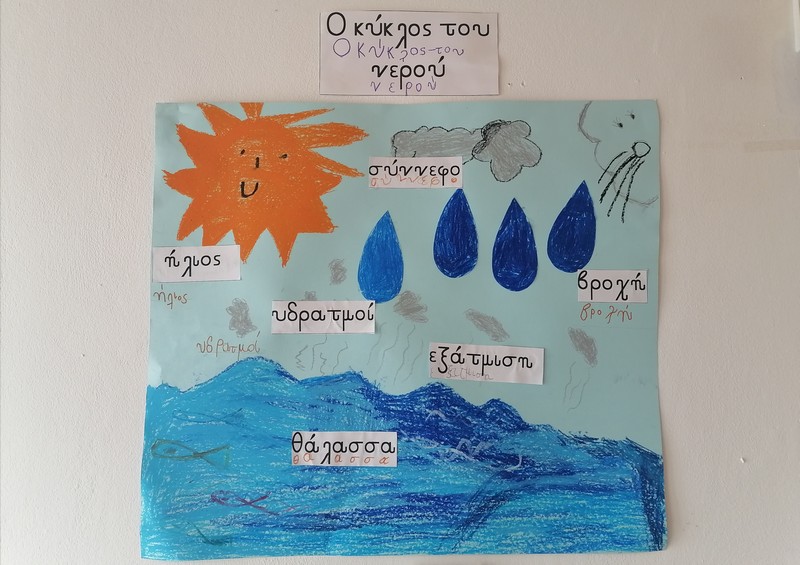 Ο κύκλος του
Ο κύκλος του
νερού
νερού
σύννεφο
σύννεφο
ήλιος
ήλιος
βροχή
βροχή
υδρατμοί
υδρατμοί
εξάτμιση
θάλασσα
θάλασσα